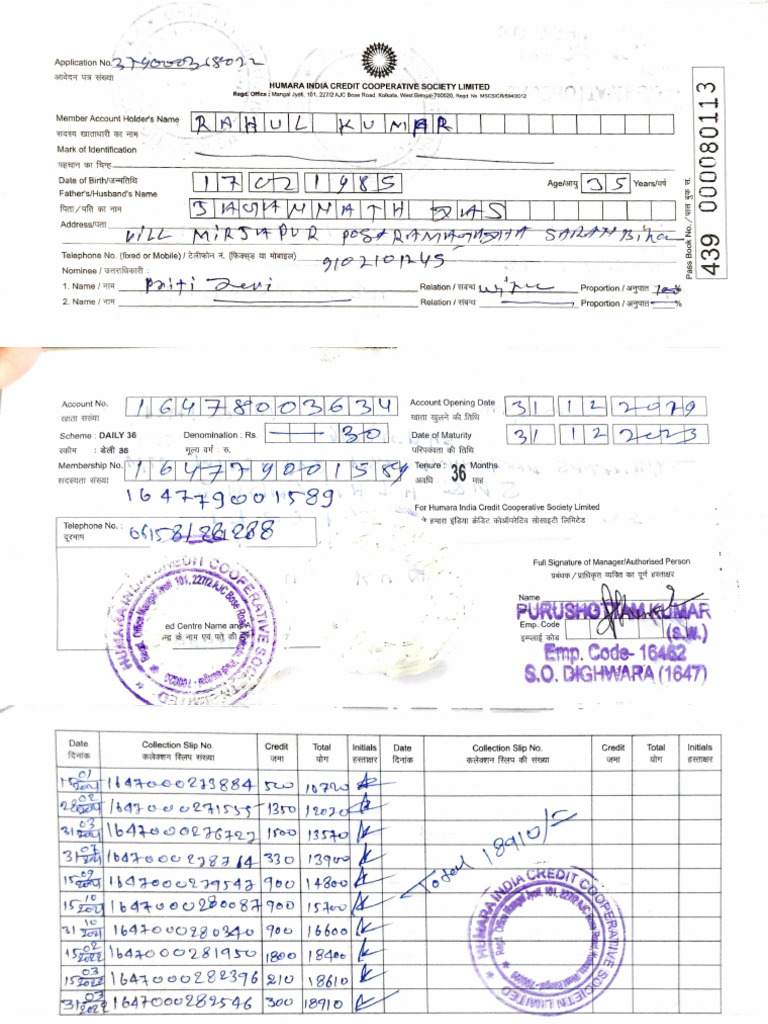 Application No. 379000368022
आवेदन पत्र संख्या
HUMARA INDIA CREDIT COOPERATIVE SOCIETY LIMITED
Regd. Office : Mangal Jyoti, 101, 227/2 AJC Bose Road, Kolkata, West Bengal-700020, Regd. No. MSCS/CR/594/2012
Member Account Holder's Name RAHUL KUMAR
सदस्य खाताधारी का नाम
Mark of Identification
पहचान का चिन्ह
Date of Birth/जन्मतिथि 17 02 1985 Age/आयु 35 Years/वर्ष
Father's/Husband's Name
पिता/पति का नाम JAGANNATH DAS
Address/पता VILL MIRJAPUR POST SARAN Bihar
Telephone No. (fixed or Mobile) / टेलीफोन नं. (फिक्सड या मोबाइल) 9102101245
Nominee / उत्तराधिकारी :
1. Name / नाम Priti Devi Relation / संबन्ध wife Proportion / अनुपात 100%
2. Name / नाम Relation / संबन्ध Proportion / अनुपात %
Pass Book No. / पास बुक सं. 439 000080113
Account No. 16478003634 Account Opening Date 31 12 2019
खाता संख्या खाता खुलने की तिथि
Scheme : DAILY 36 Denomination : Rs. 30 Date of Maturity 31 12 2023
स्कीम : डेली 36 मूल्य वर्ग : रु. परिपक्वता की तिथि
Membership No. 164779001589 Tenure : 36 Months
सदस्यता संख्या अवधि माह
164779001589
For Humara India Credit Cooperative Society Limited
हमारा इंडिया क्रेडिट कोऑपरेटिव सोसाइटी लिमिटेड
Telephone No. : 06158/28288
दूरभाष
Full Signature of Manager/Authorised Person
प्रबंधक/प्राधिकृत व्यक्ति का पूर्ण हस्ताक्षर
HUMARA INDIA CREDIT COOPERATIVE SOCIETY LIMITED
Regd. Office Mangal Jyoti 101, 227/2 AJC Bose Road, Kolkata West Bengal - 700020
ed Centre Name and
न्द्र के नाम एवं पते की
Name
PURUSHOTTAM KUMAR
Emp. Code (S.W.)
इम्प्लाई कोड
Emp. Code- 16462
S.O. DIGHWARA (1647)
Date Collection Slip No. Credit Total Initials Date Collection Slip No. Credit Total Initials
दिनांक कलेक्शन स्लिप संख्या जमा योग हस्ताक्षर दिनांक कलेक्शन स्लिप की संख्या जमा योग हस्ताक्षर
15/01/2021 1647000273884 500 10720
28/02/2021 1647000271555 1350 12070
31/03/2021 1647000276727 1500 13570
31/07/2021 1647000278714 330 13900
15/09/2021 1647000279547 900 14800
15/10/2021 1647000280087 900 15700
31/10/2021 1647000280340 900 16600
15/02/2022 1647000281950 1800 18400
15/03/2022 1647000282396 210 18610
31/03/2022 1647000282546 300 18910
Total 18910/=
HUMARA INDIA CREDIT COOPERATIVE SOCIETY LIMITED
Regd. Office Mangal Jyoti, 101, 227/2 AJC Bose Road, Kolkata West Bengal - 700020